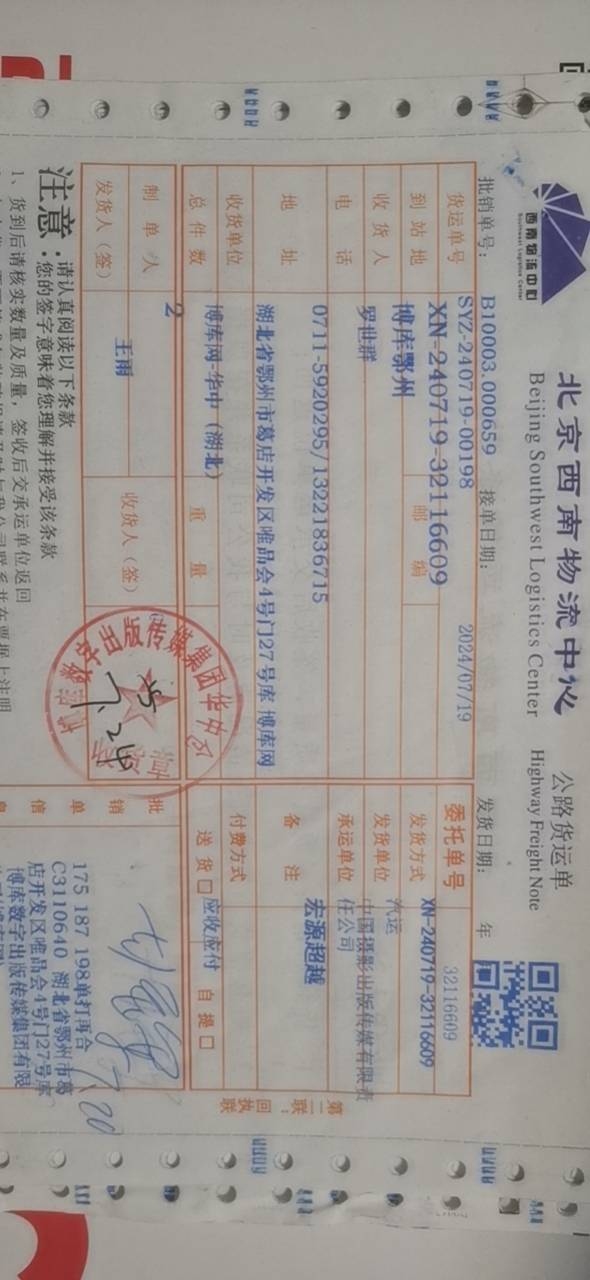 西南物流中心
Southwest Logistics Center
北京西南物流中心
Beijing Southwest Logistics Center
公路货运单
Highway Freight Note
批销单号: B10003.000659 接单日期: 2024/07/19 发货日期: 年
SYZ-240719-00198
货运单号 XN-240719-32116609
委托单号 32116609
XN-240719-32116609
到站地 博库鄂州 邮编
发货方式 汽运
收货人 罗世群
发货单位 中国摄影出版传媒有限责任公司
电话 0711-5920295/13221836715
承运单位 宏源超越
地址 湖北省鄂州市葛店开发区唯品会4号门27号库 博库网
备注
收货单位 博库网-华中(湖北)
付费方式 应收应付
总件数 2 重量
送货□ 自提□
制单人 王雨
收货人(签)
发货人(签)
7.24
批销单信息
175 187 198单打再合
C3110640 湖北省鄂州市葛
店开发区唯品会4号门27号库
博库数字出版传媒集团有限
7/20
第二联:回执联
注意:
请认真阅读以下条款
您的签字意味着您理解并接受该条款
1、货到后请核实数量及质量,签收后交承运单位返回